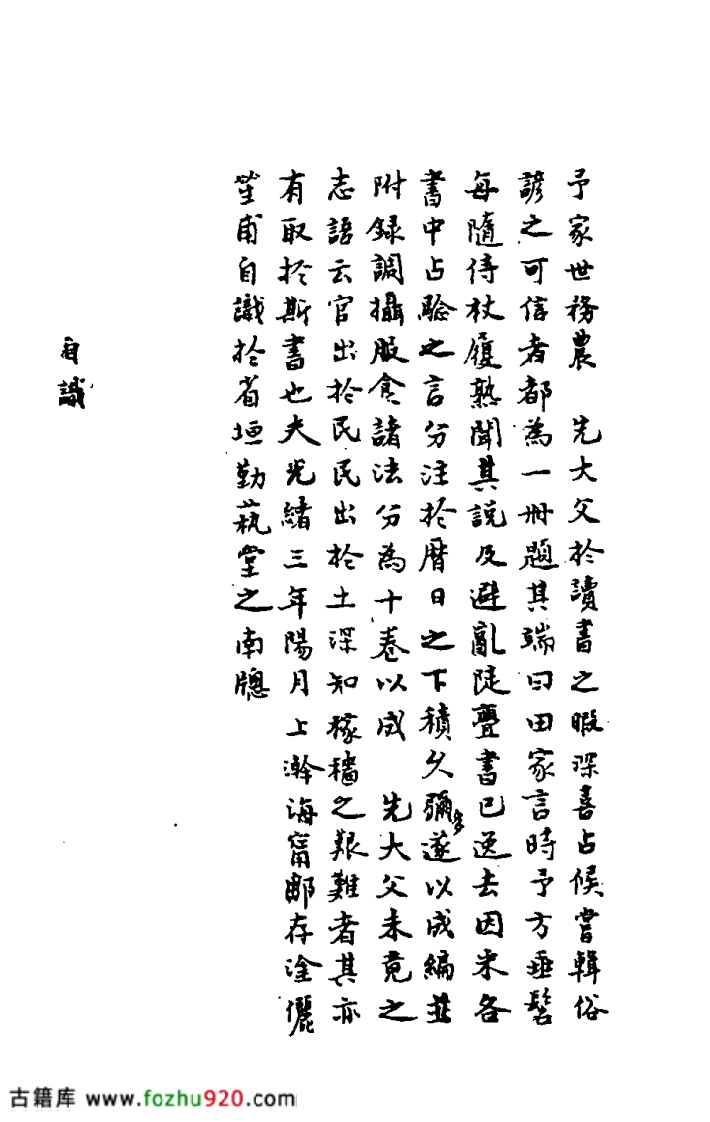 予家世務農　先大父於讀書之暇深喜占候嘗輯俗
諺之可信者都為一冊題其端曰田家言時予方垂髫
每隨侍杖履熟聞其說及避亂陡亹書已逸去因采各
書中占驗之言分注於曆日之下積久彌多遂以成編並
附錄調攝服食諸法分為十卷以成　先大父未竟之
志語云官出於民民出於土深知稼穡之艱難者其亦
有取於斯書也夫光緒三年陽月上澣海甯鄒存淦儷
笙甫自識於省垣勤藝堂之南牕
自識
古籍库 www.fozhu920.com